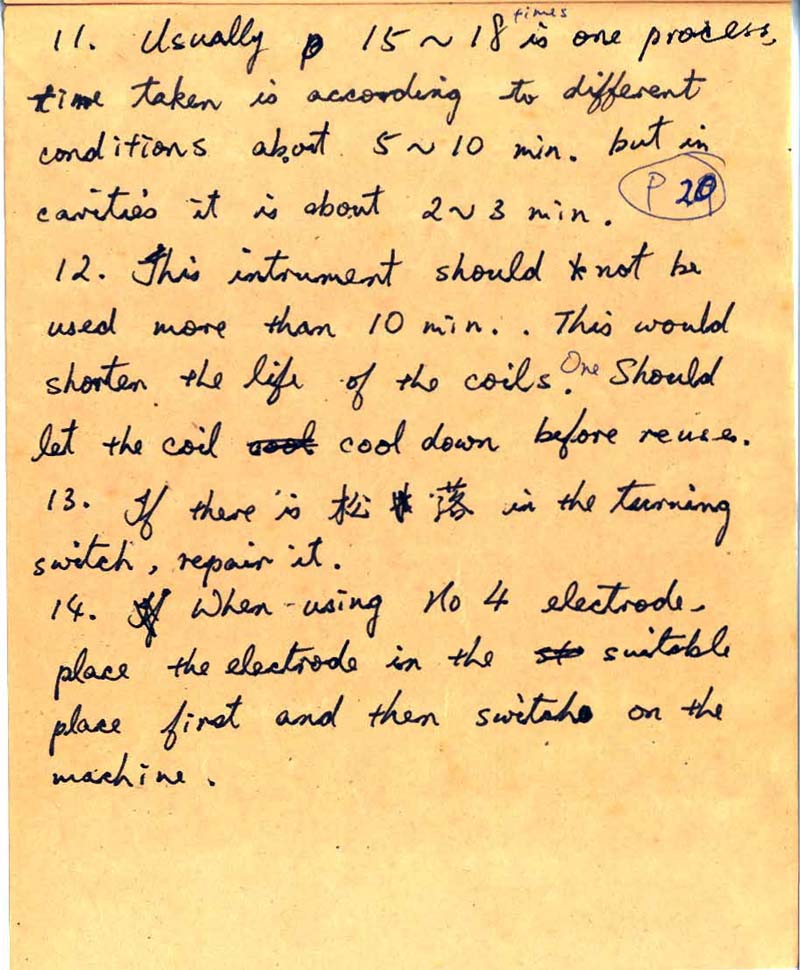 11. Usually 15 ~ 18 times is one process,
time taken is according to different
conditions about 5 ~ 10 min. but in
cavities it is about 2 ~ 3 min. P 20
12. This intrument should not be
used more than 10 min.. This would
shorten the life of the coils. One Should
let the coil cool cool down before reuse.
13. If there is 松 落 in the turning
switch, repair it.
14. If When using No 4 electrode
place the electrode in the st suitable
place first and then switch on the
machine.